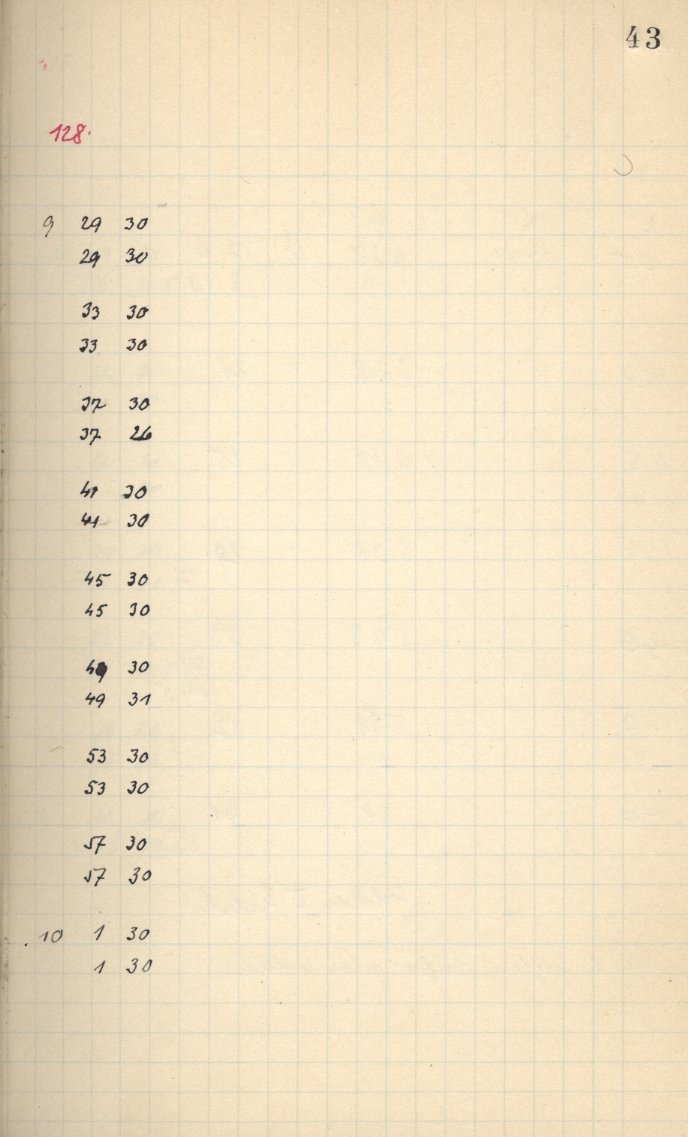 43
128.
9 29 30
29 30
33 30
33 30
37 30
37 26
41 30
41 30
45 30
45 30
49 30
49 31
53 30
53 30
57 30
57 30
10 1 30
1 30